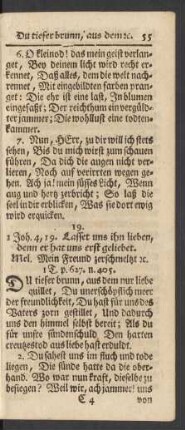 Du tieser brunn, aus dem ꝛc. 55
6. O kleinod! das mein geist verlan-
get, Bey deinem licht wird recht er-
kennet, Daß alles, dem die welt nach-
rennet, Mit eingebildten farben pran-
get: Die ehr ist eine last, In blumen
eingefaßt; Der reichthum ein vergüld-
ter jammer; Die wohllust eine todten-
kammer.
7. Nun, HErr, zu dir will ich stets
sehen, Bis du mich wirst zum schauen
führen, Da dich die augen nicht ver-
lieren, Noch auf verirrten wegen ge-
hen. Ach ja! mein süsses licht, Wenn
aug und hertz zerbricht; So laß die
seel in dir erblicken, Was sie dort ewig
wird erquicken.
19.
1 Joh. 4, 19. Lasset uns ihn lieben,
denn er hat uns erst geliebet.
Mel. Mein Freund zerschmeltzt ꝛc.
1 T. p. 627. n. 405.
DU tiefer brunn, aus dem nur liebe
quillet, Du unerschöpflich meer
der freundlichkeit, Du hast für uns des
Vaters zorn gestillet, Und dadurch
uns den himmel selbst bereit; Als du
für unsre sündenschuld Den harten
creutzestod aus liebe hast erduldt.
2. Du sahest uns im fluch und tode
liegen, Die sünde hatte da die ober-
hand. Wo war nun kraft, dieselbe zu
besiegen? Weil wir, ach jammer! uns
C 4 von